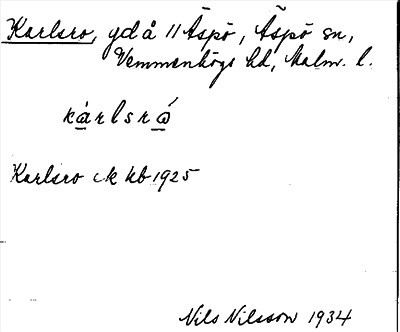 Karlsro, gd å 11 Äspö, Äspö sn,
Vemmenhögs hd, Malm. l.
kárlsró
Karlsro ck kb 1925
Nils Nilsson 1934